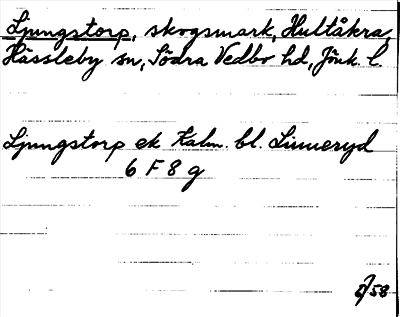 Ljungstorp, skogsmark, Hultåkra,
Hässleby sn, Södra Vedbo hd, Jönk. l.
Ljungstorp ek Kalm. bl. Linneryd
6 F 8 g
/58